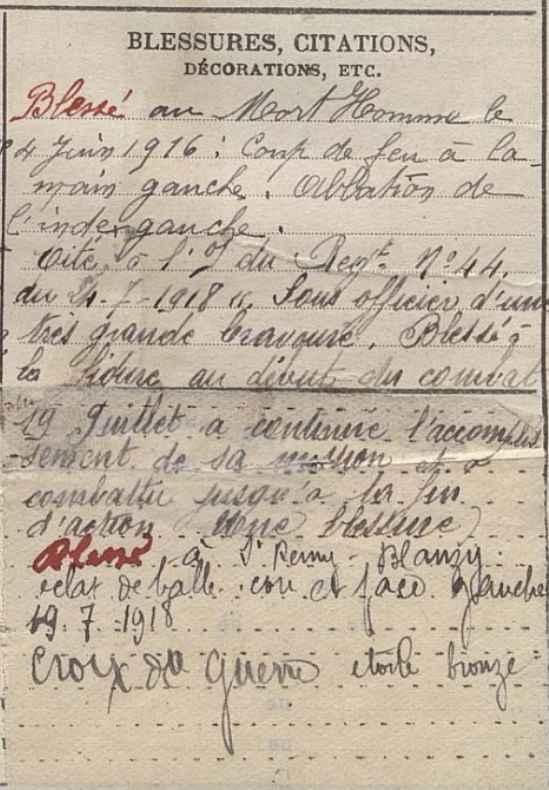 BLESSURES, CITATIONS,
DÉCORATIONS, ETC.
Blessé au Mort Homme le
4 Juin 1916 : Coup de feu à la
main gauche. Ablation de
l'index gauche.
Cité à l'O/ du Regt. N° 44.
du 24-7-1918 "Sous officier d'une
très grande bravoure. Blessé à
la figure au début du combat
19 Juillet a continué l'accomplis
sement de sa mission et a
combattu jusqu'à la fin
d'action (Une blessure)
Blessé à St Remy-Blanzy
eclat de balle cou et face gauche
19.7.1918
Croix de Guerre etoile bronze